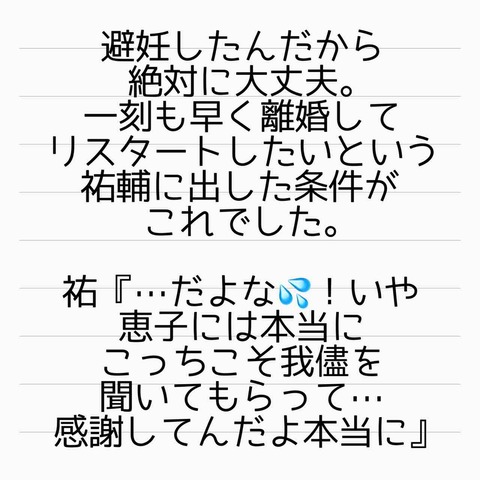 避妊したんだから
絶対に大丈夫。
一刻も早く離婚して
リスタートしたいという
祐輔に出した条件が
これでした。
祐『…だよな💦！いや
恵子には本当に
こっちこそ我儘を
聞いてもらって…
感謝してんだよ本当に』